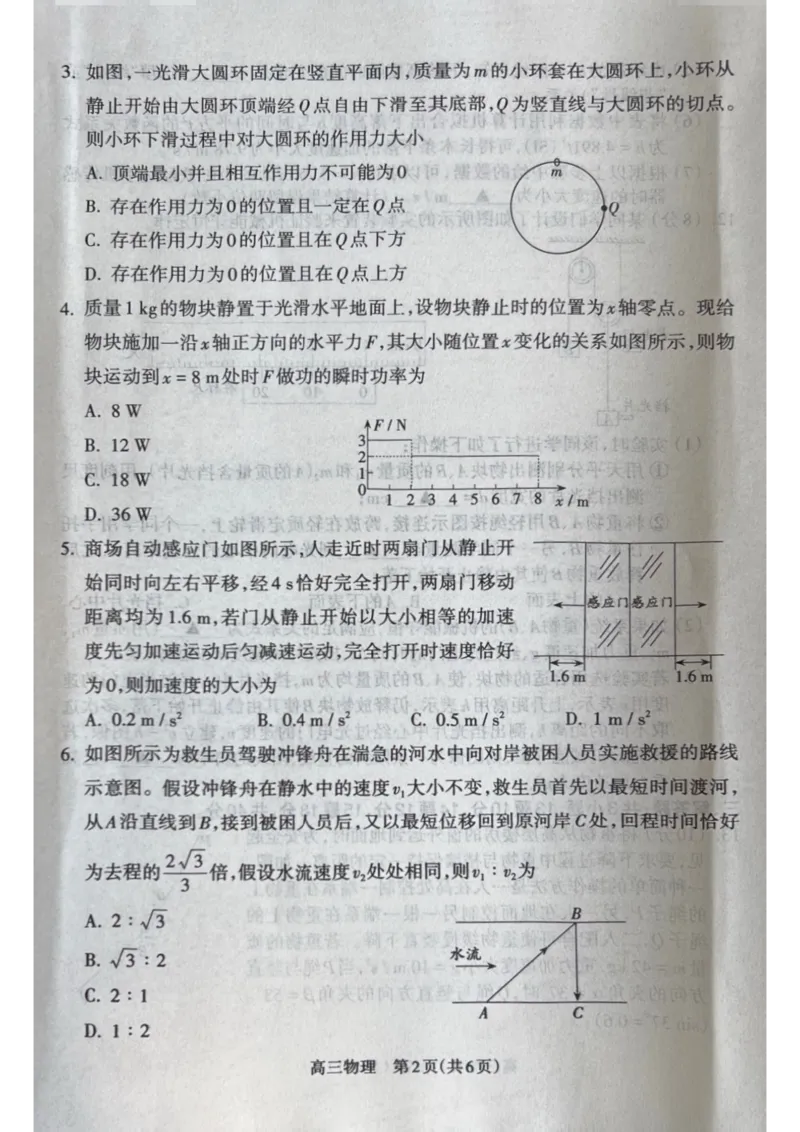 3. 如图,一光滑大圆环固定在竖直平面内,质量为m的小环套在大圆环上,小环从
静止开始由大圆环顶端经Q点自由下滑至其底部,Q为竖直线与大圆环的切点。
则小环下滑过程中对大圆环的作用力大小
A. 顶端最小并且相互作用力不可能为0
B. 存在作用力为0的位置且一定在Q点
C. 存在作用力为0的位置且在Q点下方
D. 存在作用力为0的位置且在Q点上方
m
Q
4. 质量1 kg的物块静置于光滑水平地面上,设物块静止时的位置为x轴零点。现给
物块施加一沿x轴正方向的水平力F,其大小随位置x变化的关系如图所示,则物
块运动到x = 8 m处时F做功的瞬时功率为
A. 8 W
B. 12 W
C. 18 W
D. 36 W
F / N
3
2
1
0
1 2 3 4 5 6 7 8 x / m
5. 商场自动感应门如图所示,人走近时两扇门从静止开
始同时向左右平移,经4 s恰好完全打开,两扇门移动
距离均为1.6 m,若门从静止开始以大小相等的加速
度先匀加速运动后匀减速运动,完全打开时速度恰好
为0,则加速度的大小为
A. 0.2 m / s² B. 0.4 m / s² C. 0.5 m / s² D. 1 m / s²
感应门 感应门
1.6 m 1.6 m
6. 如图所示为救生员驾驶冲锋舟在湍急的河水中向对岸被困人员实施救援的路线
示意图。假设冲锋舟在静水中的速度v₁大小不变,救生员首先以最短时间渡河,
从A沿直线到B,接到被困人员后,又以最短位移回到原河岸C处,回程时间恰好
为去程的2√3/3倍,假设水流速度v₂处处相同,则v₁∶v₂为
A. 2∶√3
B. √3∶2
C. 2∶1
D. 1∶2
B
水流
A C
高三物理 第2页(共6页)